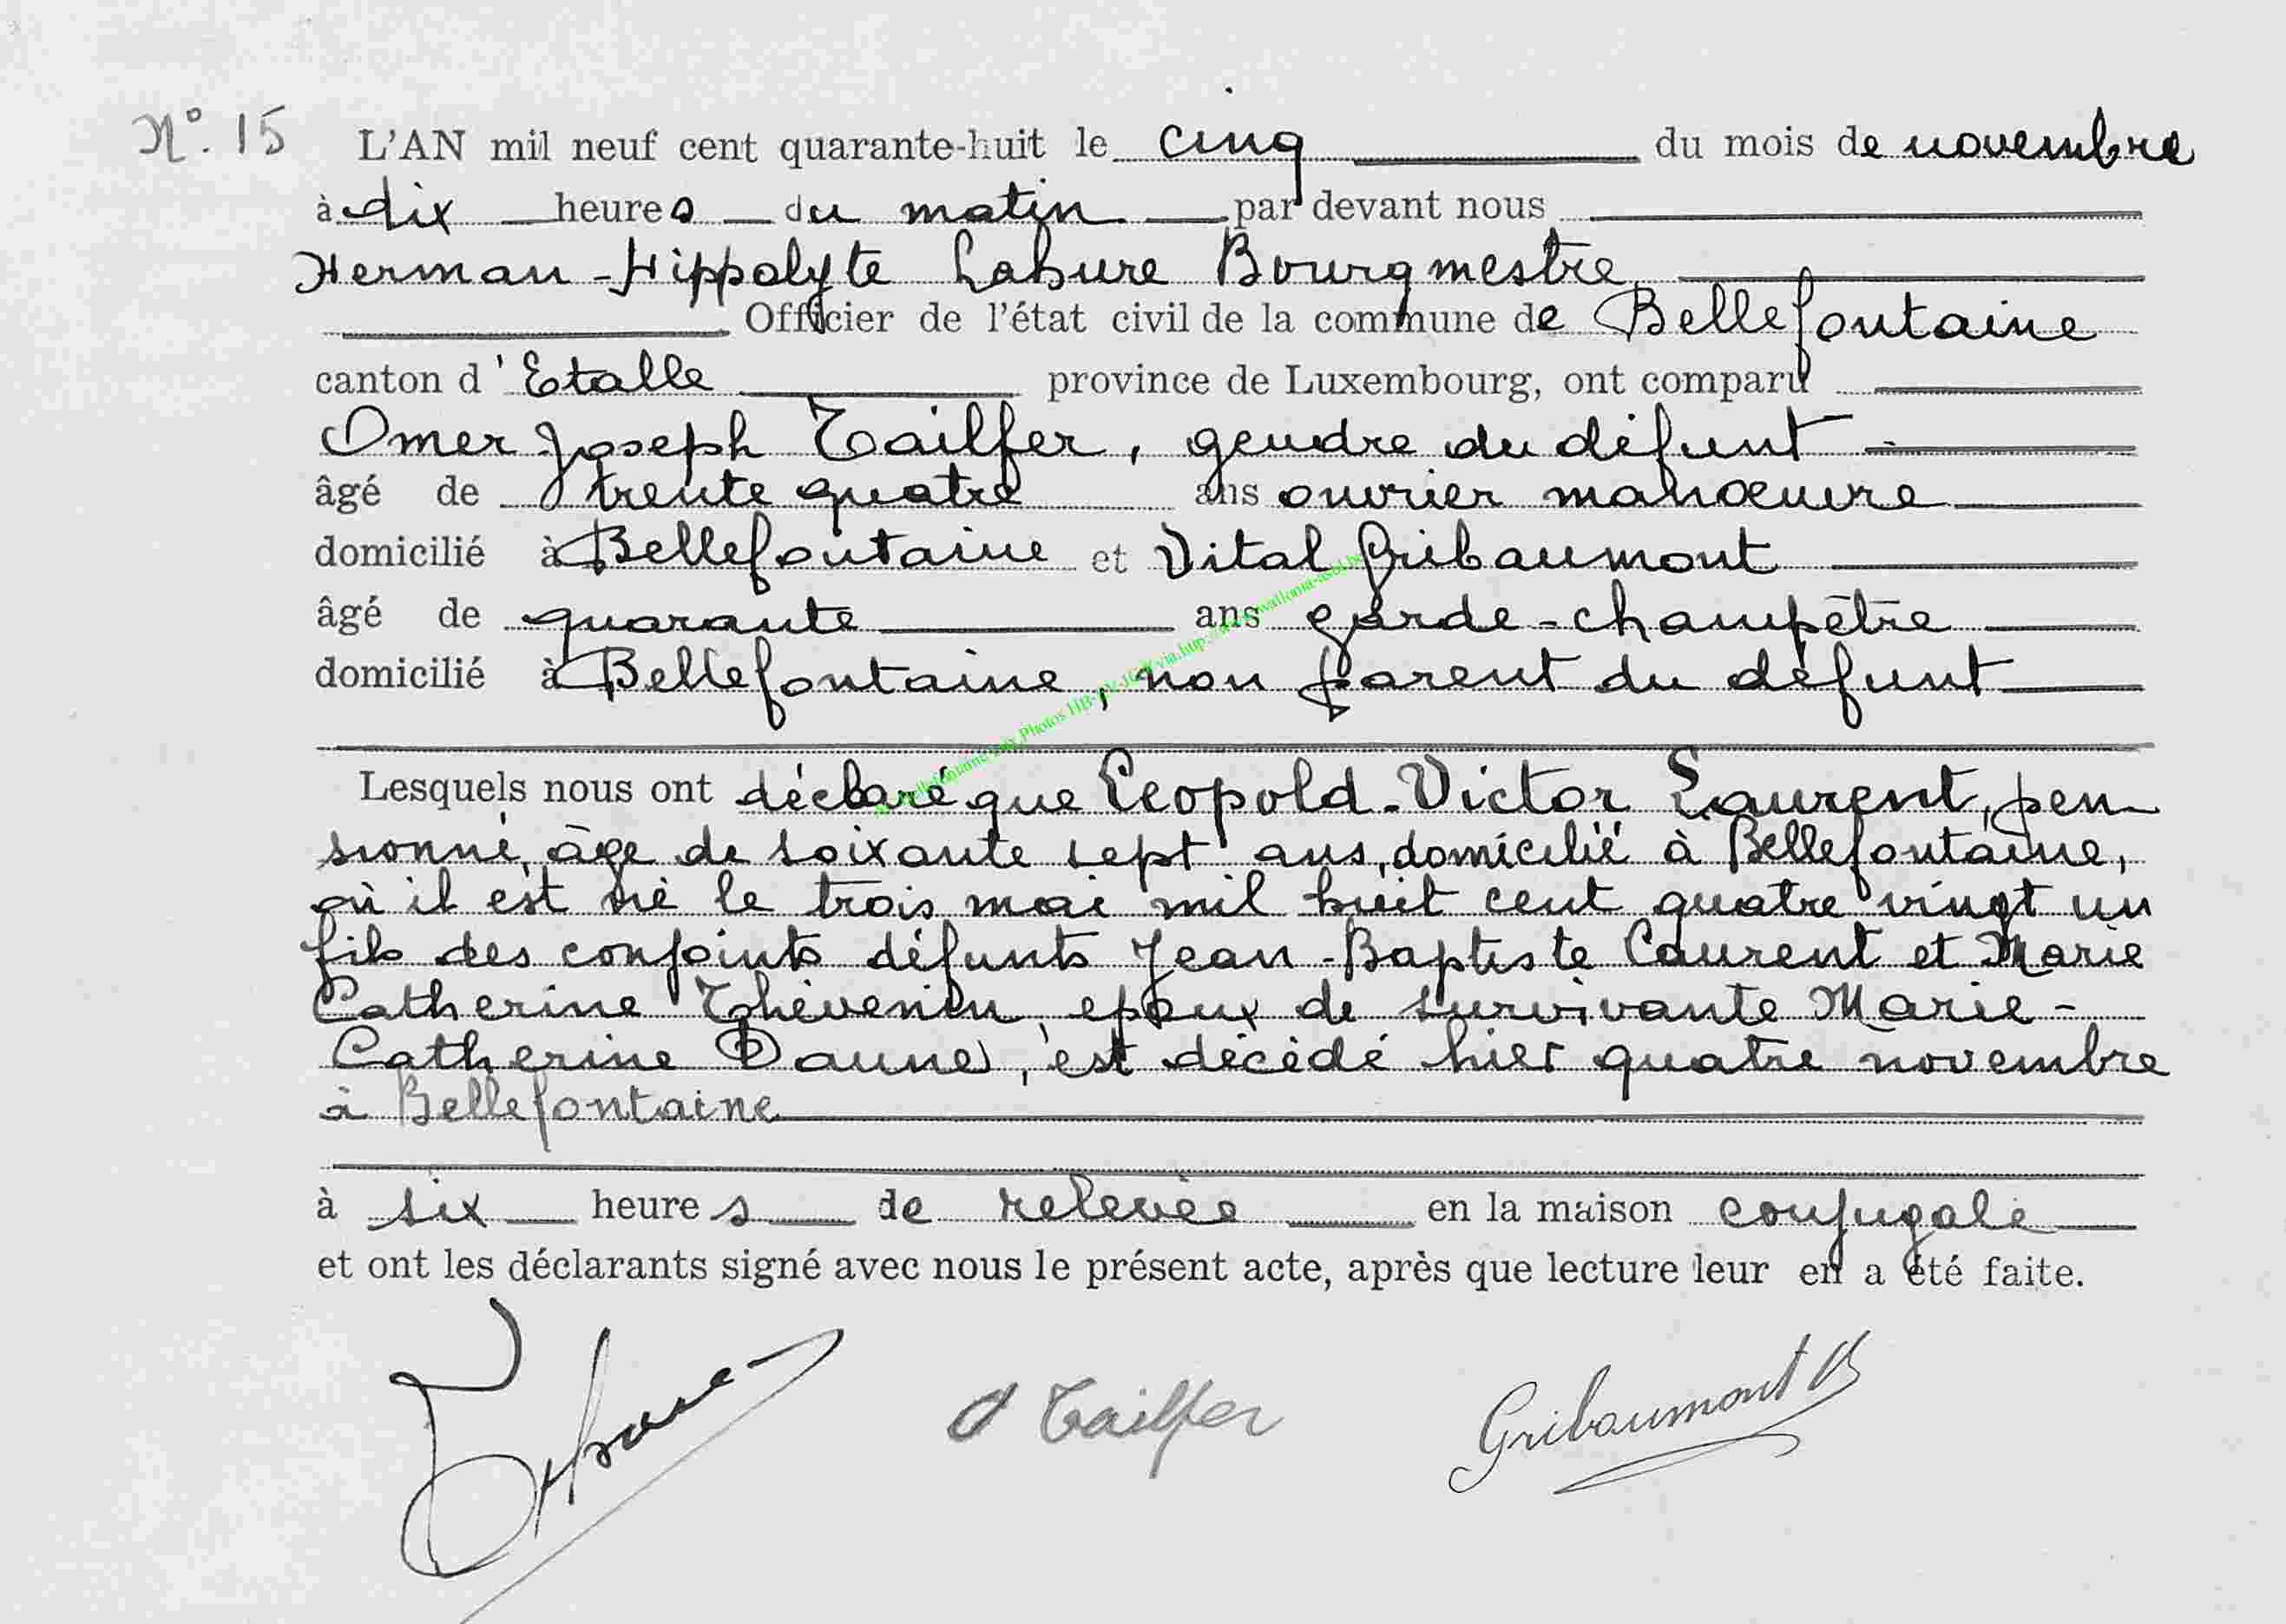 N° 15 L'AN mil neuf cent quarante-huit le cinq du mois de novembre
à dix heures du matin par devant nous
Herman-Hippolyte Lahure Bourgmestre
Officier de l'état civil de la commune de Bellefontaine
canton d'Etalle province de Luxembourg, ont comparu
Omer Joseph Tailfer, gendre du défunt
âgé de trente quatre ans ouvrier manœuvre
domicilié à Bellefontaine et Vital Gribaumont
âgé de quarante ans garde-champêtre
domicilié à Bellefontaine, non parent du défunt
Lesquels nous ont déclaré que Léopold-Victor Laurent, pen
sionné, âgé de soixante sept ans, domicilié à Bellefontaine,
où il est né le trois mai mil huit cent quatre vingt un
fils des conjoints défunts Jean-Baptiste Laurent et Marie
Catherine Thévenin, époux de survivante Marie-
Catherine Daune, est décédé hier quatre novembre
à Bellefontaine
à six heures de relevée en la maison conjugale
et ont les déclarants signé avec nous le présent acte, après que lecture leur en a été faite.
O Tailfer
Gribaumont V